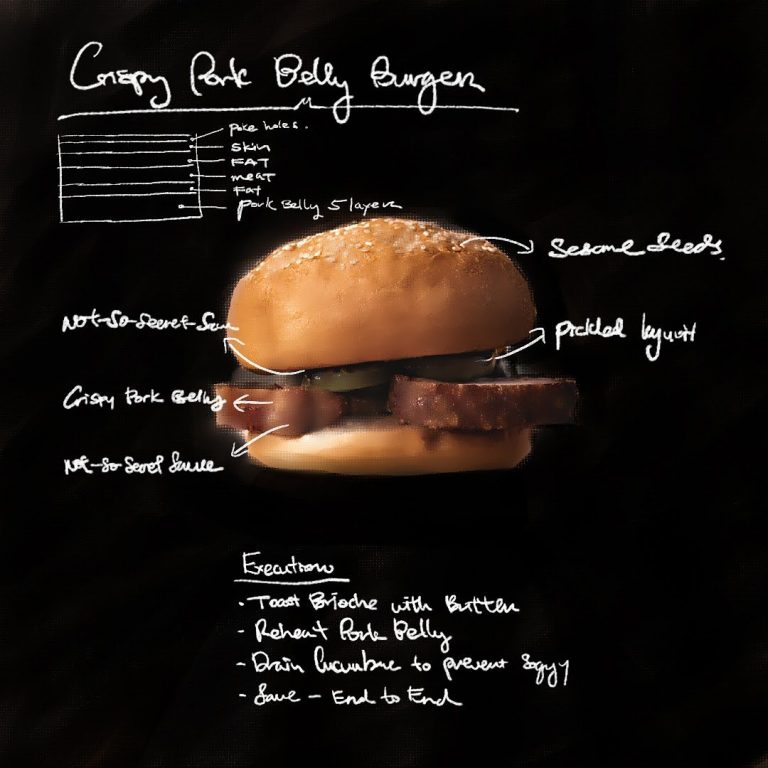 Crispy Pork Belly Burger
poke holes.
skin
FAT
meat
Fat
pork Belly 5 layers
Sesame Seeds.
Not-So-Secret-Sauce
pickled
Crispy Pork Belly
Not-So Secret Sauce
Execution
· Toast Brioche with Butter
- Reheat Pork Belly
- Drain Cucumber to prevent Soggy
- Sauce – End to End